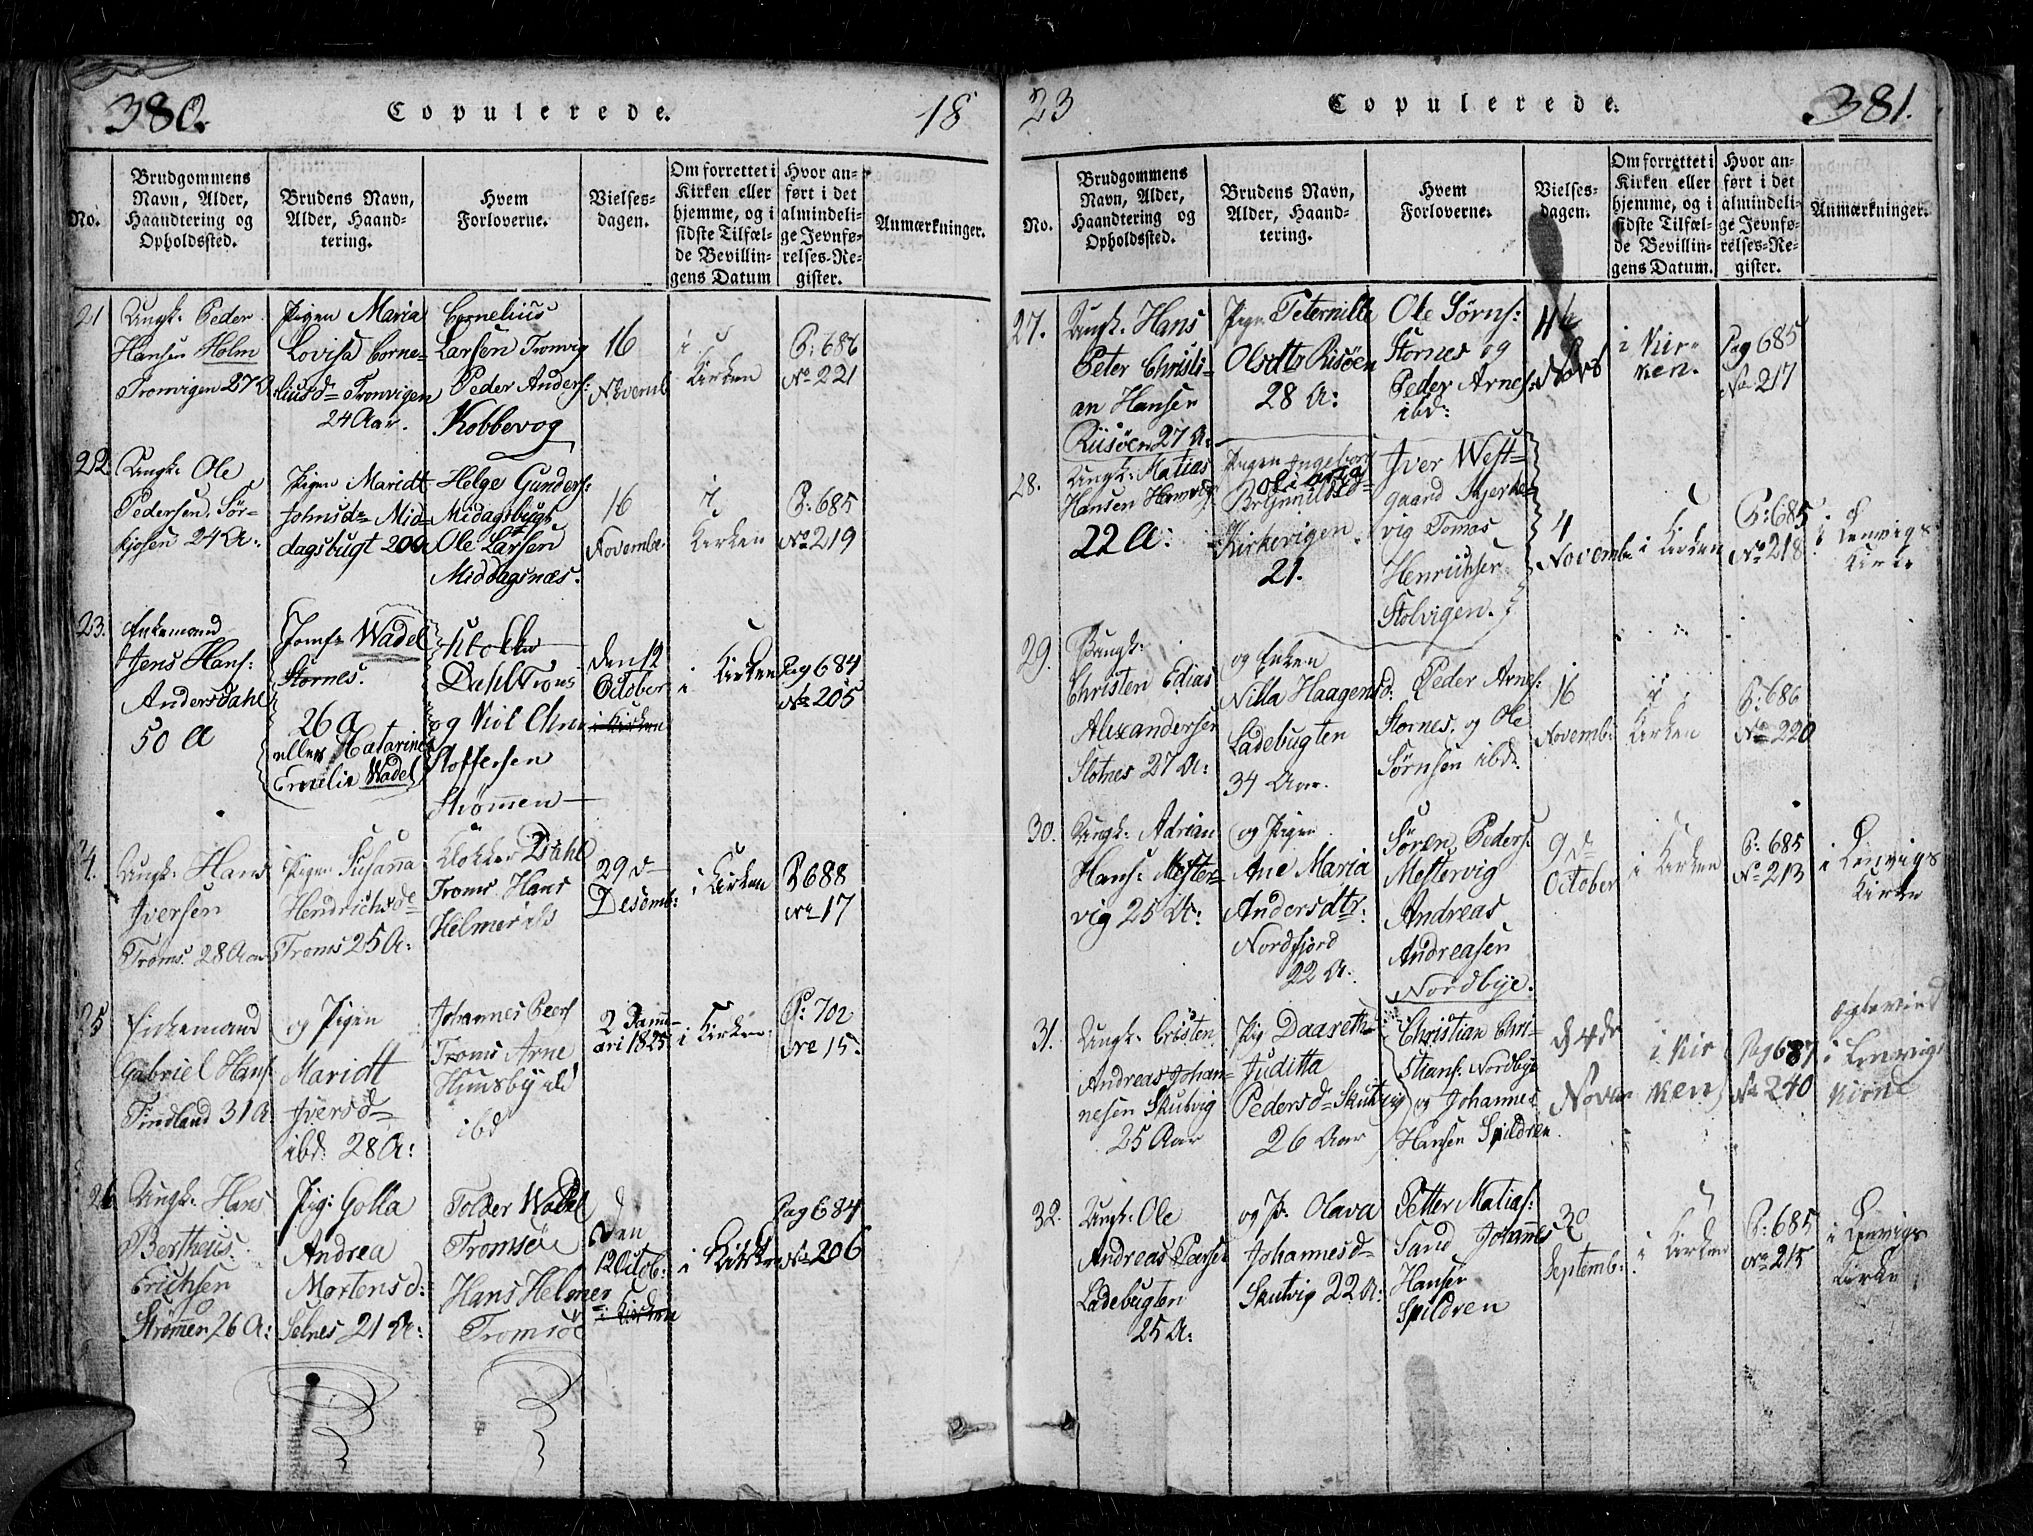 380.
Copulerede.
18
No.
Brudgommens Navn, Alder, Haandtering og Opholdssted.
Brudens Navn, Alder, Haandtering.
Hvem Forloverne.
Vielses-dagen.
Om forrettet i Kirken eller hjemme, og i sidste Tilfælde Bevillingens Datum
Hvor anført i det almindelige Jevnførelses-Register.
Anmærkninger.
21
Ungk: Peder
Hansen Holm
Tromvigen 27 A
Pigen Maria
Lovisa Corne-
liusd= Tromvigen
24 Aar.
Cornelius
Larsen Tromvig
Peder Anders:
Kobbevog
16
Novemb
i
Kirken
P: 686
No 221
22
Ungk: Ole
Pedersen Sør-
kjosen 24 A:
Pigen Maridt
Johnsd= Mid-
dagsbugt 20 A
Helge Gunders:
Midagsbugt
Ole Larsen
Middagsnæs.
16
Novembr.
i
Kirken
P: 685
No 219
23.
Enkemand
Jens Hans:
Andersdahl
50 A
Jomfr Wadel
Stornes.
26 A
eller Catarina
Emelie Wadel
Klokker
Dahl Troms
og Niel Chri
Stoffersen
Strømmen
den 12
October
i Kirken
i Kirken
Pag 684
No 205
24.
Ungk: Hans
Iversen
Troms. 28 Aar
Pigen Susanna
Hendrichsd=
Troms 25 A:
Klokker Dahl
Troms Hans
Helmer ibd
29 d
Desemb:
i Kirken
P 688
No 17
25
Enkemand
Gabriel Hans:
Tindland 31 A:
og Pigen
Maridt
Iversd=
ibd: 28 A:
Johannes Peers
Troms Arne
ibd
2 Janu-
ari 1825
i Kirken
P: 702
No 15.
26
Ungk: Hans
Bertheus
Erichsen
Strømmen 26 A:
Pig: Golla
Andrea
Mortensd:
Selnes 21 A:
Tolder Wadel
Tromsøe
Hans Helmer
Tromsøe
Den
12 Octob:
i Kirken
i Kirken
Pag 684
No 206
23
Copulerede.
381.
No.
Brudgommens Navn, Alder, Haandtering og Opholdssted.
Brudens Navn, Alder, Haandtering.
Hvem Forloverne.
Vielses-dagen.
Om forrettet i Kirken eller hjemme, og i sidste Tilfælde Bevillingens Datum.
Hvor anført i det almindelige Jevnførelses-Register.
Anmærkninger.
27.
Ungk: Hans
Peter Christi-
an Hansen
Riisøen 27 A:
Pige Peternille
Olsdtr Riisøen
28 A:
Ole Sørns:
Stornes og
Peder Arnes:
ibd:
Nov
i Kir-
ken.
Pag 685
No 217
28.
Ungk: Matias
Hansen Hamvig
22 A:
Pigen Ingeborg
Olina
Kirkevigen.
21.
Iver West-
gaard Kjerke-
vig Tomas
Henrichsen
Stolvigen.
4
Novemb
i Kirken
P: 685
No 218
i Lenvigs
Kirke
29.
Ungk:
Christen Edias
Alexandersen
Stornes 27 A:
og Enken
Nilla Haagensd:
Ladebugten
34 Aar.
Peder Arnes:
Stornes. og Ole
Sørnsen ibd.
16
Novemb:
i
Kirken
P: 686
No 220
30.
Ungk: Adrian
Hans: Mester-
vig 25 A:
og Pigen
Ane Maria
Andersdtr:
Nordfjord
22 A:
Søren Peders:
Mestervig
Andreas
Andreasen
Nordbye.
9 d
October
i Kirken
P: 685
No 213
i Lenvigs
Kirke
31.
Ungk: Cristen
Andreas Johan-
nesen Skutvig
25 Aar
Pig Daarethe
Juditta
Pedersd= Skutvig
26 Aar
Christian Chri-
stians: Nordbye
og Johannes
Hansen Spildren
d 4de
Novem
i Kir
ken
Pag 687
No 240
Egteviet
i Lenvigs
Kirke
32.
Ungk: Ole
Andreas Peersen
Ladebugten
25 A:
og P: Olava
Johannesd=
Skutvig 22 A:
Petter Matias:
Sand Johannes
Hansen
Spildren
30
Septemb:
i Kirken
P: 685
No 215
i Lenvigs
Kirke